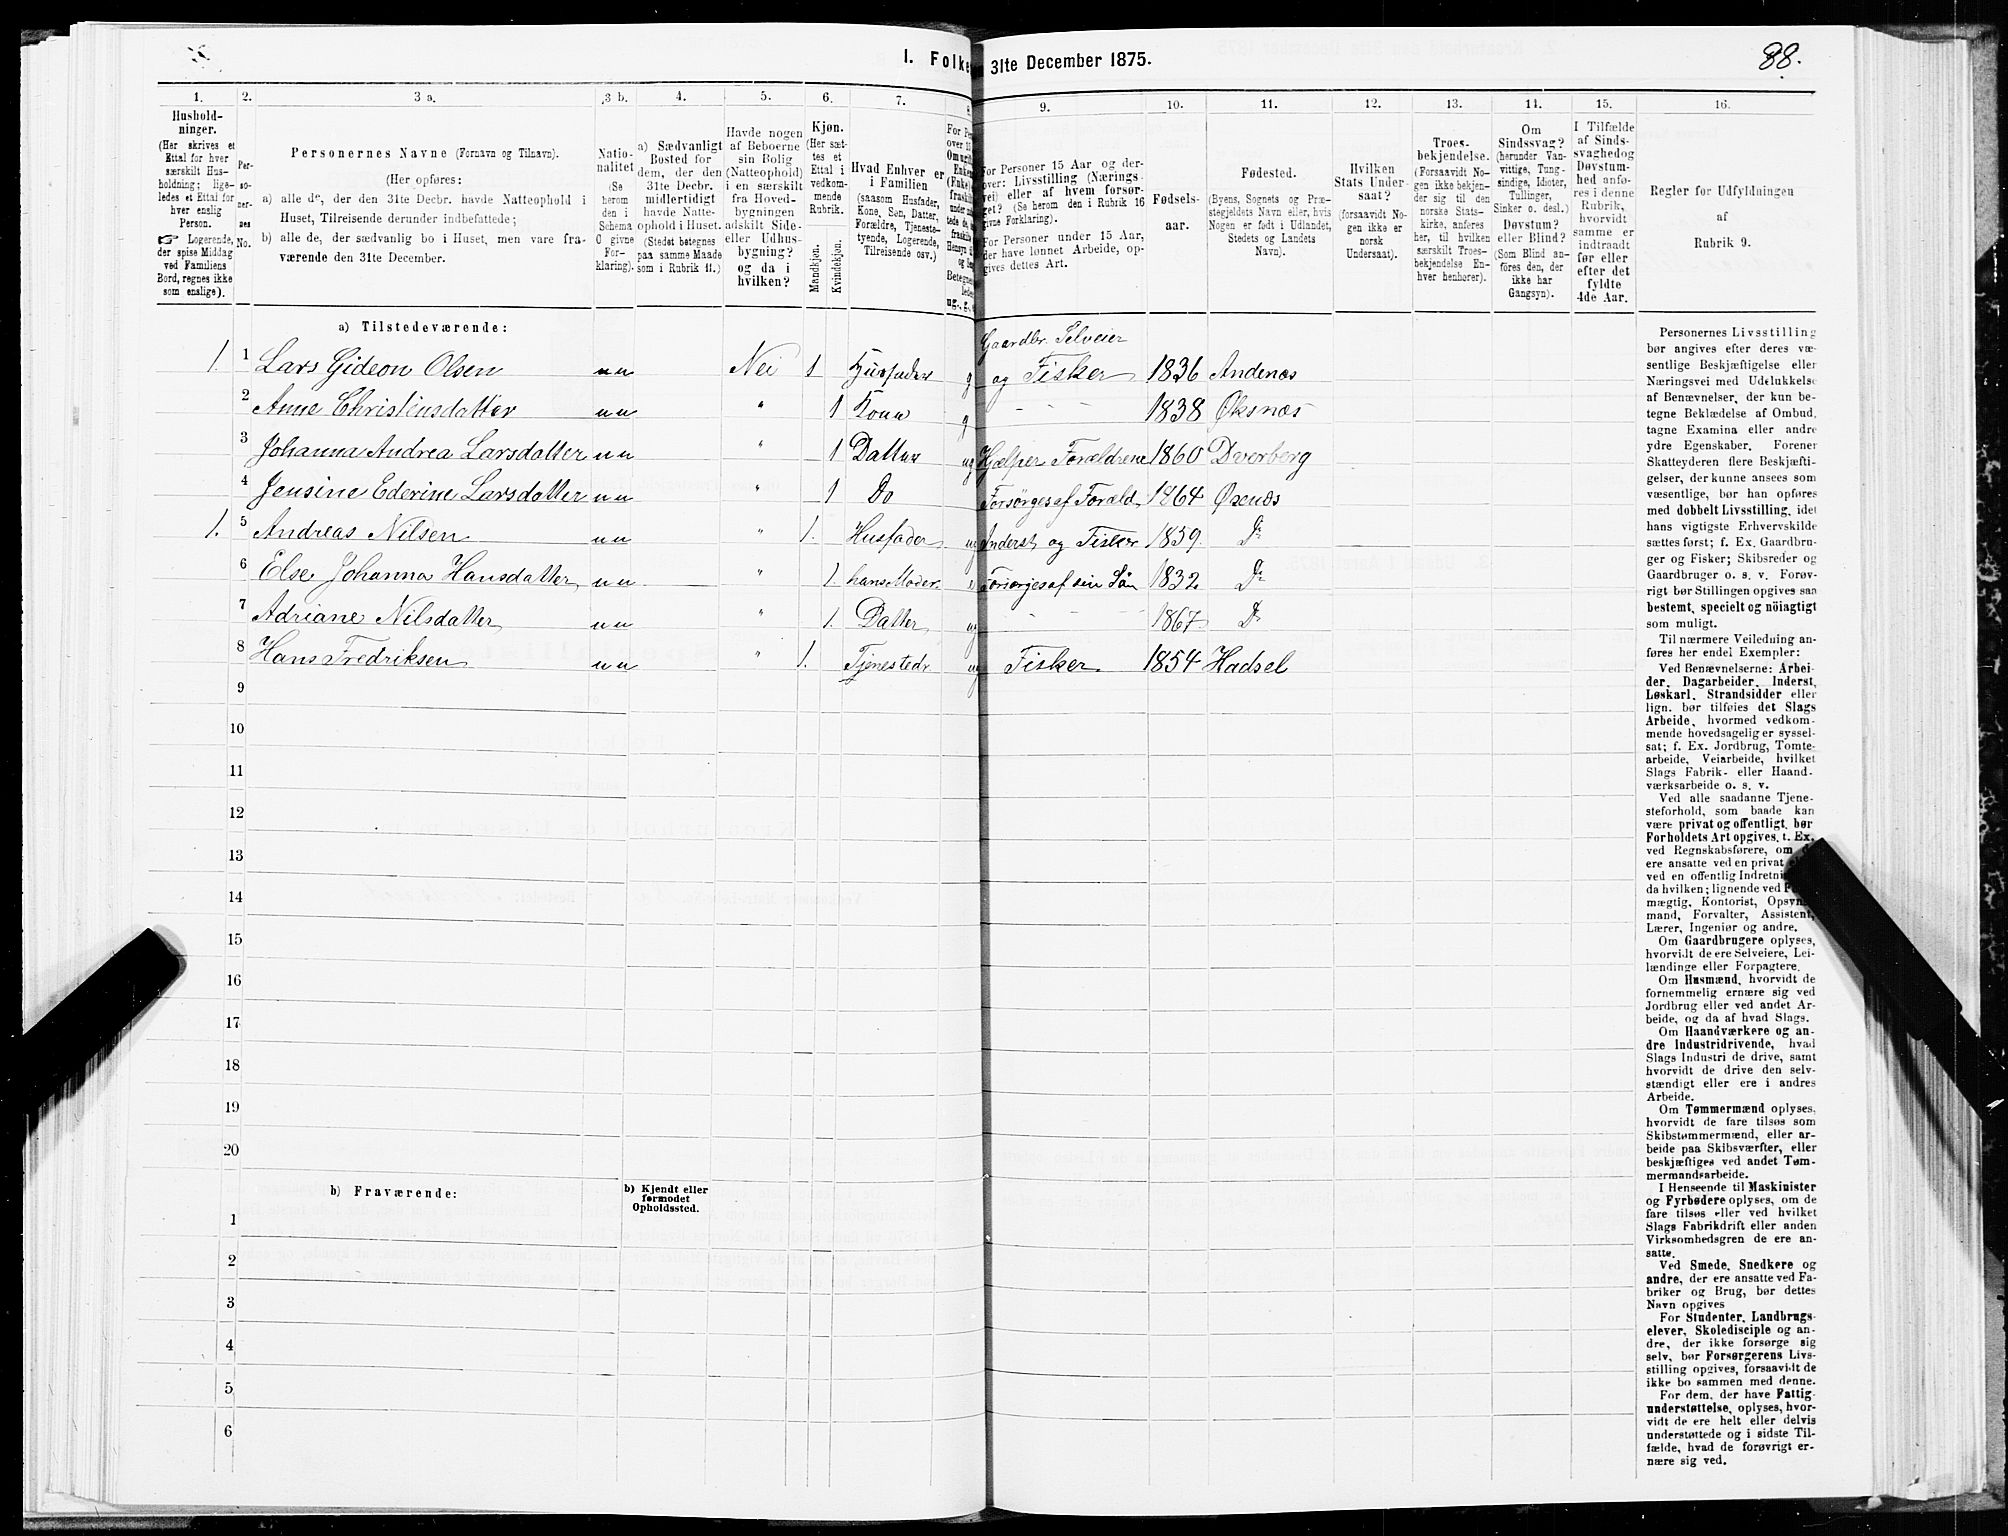 1. Folke 31te December 1875.
88.
1. 2. 3 a. 3 b. 4. 5. 6. 7. 8. 9. 10. 11. 12. 13. 14. 15. 16.
Hushold-
ninger.
(Her skrives et
Ettal for hver
særskilt Hus-
holdning; lige-
ledes et Ettal for
hver enslig
Person.
☞ Logerende,
der spise Middag
ved Familiens
Bord, regnes ikke
som enslige).
Per-
so-
ner-
nes
No.
Personernes Navne (Fornavn og Tilnavn).
(Her opføres:
a) alle de, der den 31te Decbr. havde Natteophold i
Huset, Tilreisende derunder indbefattede;
b) alle de, der sædvanlig bo i Huset, men vare fra-
værende den 31te December.
Natio-
nalitet
(Se
herom
den i
Schema
O givne
For-
klaring).
a) Sædvanligt
Bosted for
dem, der den
31te Decbr.
midlertidigt
havde Natte-
ophold i Huset.
(Stedet betegnes
paa samme Maade
som i Rubrik 11.)
Havde nogen
af Beboerne
sin Bolig
(Natteophold)
i en særskilt
fra Hoved-
bygningen
adskilt Side-
eller Udhus-
bygning?
og da i
hvilken?
Kjøn.
(Her sæt-
tes et
Ettal i
vedkom-
mende
Rubrik.
Mandkjøn.
Kvindekjøn.
Hvad Enhver er
i Familien
(saasom Husfader,
Kone, Søn, Datter,
Forældre, Tjeneste-
tyende, Logerende,
Tilreisende osv.)
For Personer 15 Aar og der-
over: Livsstilling (Nærings-
vei) eller af hvem forsør-
get? (Se herom den i Rubrik 16
givne Forklaring).
For Personer under 15 Aar,
der have lønnet Arbeide, op-
gives dettes Art.
Fødsels-
aar.
Fødested.
(Byens, Sognets og Præ-
stegjeldets Navn eller, hvis
Nogen er født i Udlandet,
Stedets og Landets
Navn).
Hvilken
Stats Under-
saat?
(forsaavidt No-
gen ikke er
norsk
Undersaat).
Troes-
bekjendelse.
(Forsaavidt No-
gen ikke bekjen-
der sig til den
norske Stats-
kirke, anføres
her, til hvilken
særskilt Troes-
bekjendelse En-
hver henhører).
Om
Sindssvag?
(herunder Van-
vittige, Tung-
sindige, Idioter,
Tullinger,
Sinker o. desl.)
Døvstum?
eller Blind?
(Som Blind an-
føres den, der
ikke har
Gangsyn).
I Tilfælde
af Sinds-
svaghed og
Døvstum-
hed anfø-
res i denne
Rubrik,
hvorvidt
samme er
indtraadt
før eller
efter det
fyldte
4de Aar.
Regler for Udfyldningen
af
Rubrik 9.
a) Tilstedeværende:
Gaardbr. Selveier
1. 1 Lars Gideon Olsen nn Nei 1 Husfader g og Fisker 1836 Andenæs
2 Anne Christensdatter nn " 1 Kone g - - 1838 Øksnæs
3 Johanna Andrea Larsdatter nn " 1 Datter ug Hjælper Forældrene 1860 Dverberg
4 Jensine Ederine Larsdatter nn " 1 Do Forsørges af Foræld. 1864 Øxnæs
1. 5 Andreas Nilsen nn " 1. Husfader ug Inderst og Fisker 1859 Do
6 Else Johanna Hansdatter nn " 1 hans Moder Forsørges af sin Søn 1832 Do
7 Adriane Nilsdatter nn " 1. Datter ug - - - 1867 Do
8 Hans Fredriksen nn " 1. Tjenestedr. ug Fisker 1854 Hadsel
9
10
11
12
13
14
15
16
17
18
19
20
b) Fraværende:
b) Kjendt eller
formodet
Opholdssted.
1
2
3
4
5
6
Personernes Livsstilling
bør angives efter deres væ-
sentlige Beskjæftigelse eller
Næringsvei med Udelukkelse
af Benævnelser, der kun be-
tegne Beklædelse af Ombud,
tagne Examina eller andre
ydre Egenskaber. Forener
Skatteyderen flere Beskjæfti-
gelser, der kunne ansees som
væsentlige, bør han opføres
med dobbelt Livsstilling, idet
hans vigtigste Erhvervskilde
sættes først; f. Ex. Gaardbru-
ger og Fisker; Skibsreder og
Gaardbruger o. s. v. Forøv-
rigt bør Stillingen opgives saa
bestemt, specielt og nöiagtigt
som muligt.
Til nærmere Veiledning an-
føres her endel Exempler:
Ved Benævnelserne: Arbei-
der, Dagarbeider, Inderst,
Løskarl, Strandsidder eller
lign. bør tilføies det Slags
Arbeide, hvormed vedkom-
mende hovedsagelig er syssel-
sat; f. Ex. Jordbrug, Tomte-
arbeide, Veiarbeide, hvilket
Slags Fabrik- eller Haand-
værksarbeide o. s. v.
Ved alle saadanne Tjene-
steforhold, som baade kan
være privat og offentligt, bør
Forholdets Art opgives, t. Ex.
ved Regnskabsførere, om
ere ansatte ved en privat
ved en offentlig Indretni
da hvilken; lignende ved
mægtig, Kontorist, Opsyns-
mand, Forvalter, Assistent,
Lærer, Ingeniør og andre.
Om Gaardbrugere oplyses,
hvorvidt de ere Selveiere, Lei-
lændinge eller Forpagtere.
Om Husmænd, hvorvidt de
fornemmelig ernære sig ved
Jordbrug eller ved andet Ar-
beide, og da af hvad Slags.
Om Haandværkere og an-
dre Industridrivende, hvad
Slags Industri de drive, samt
hvorvidt de drive den selv-
stændigt eller ere i andres
Arbeide.
Om Tømmermænd oplyses,
hvorvidt de fare tilsøs som
Skibstømmermænd, eller ar-
beide paa Skibsværfter, eller
beskjæftiges ved andet Tøm-
mermandsarbeide.
I Henseende til Maskinister
og Fyrbødere oplyses, om de
fare tilsøs eller ved hvilket
Slags Fabrikdrift eller anden
Virksomhedsgren de ere an-
satte.
Ved Smede, Snedkere og
andre, der ere ansatte ved Fa-
briker og Brug, bør dettes
Navn opgives
For Studenter, Landbrugs-
elever, Skoledisciple og an-
dre, der ikke forsørge sig
selv, bør Forsørgerens Livs-
stilling opgives, forsaavidt de
ikke bo sammen med denne.
For dem, der have Fattig-
understøttelse, oplyses, hvor-
vidt de ere helt eller delvis
understøttede og i sidste Til-
fælde, hvad de forøvrigt er-
nære sig ved.